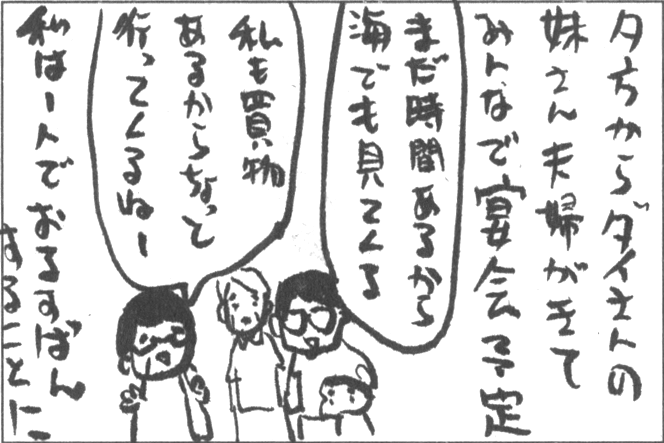 夕方からダイさんの
妹さん夫婦がきて
みんなで宴会予定
まだ時間あるから
海でも見てくる
私も買物
あるからちょっと
行ってくるねー
私は一人でおるすばん
することに